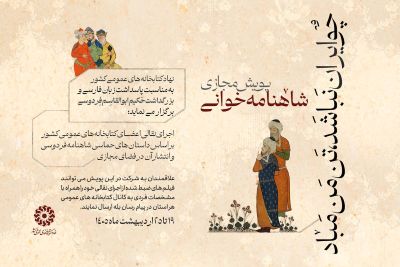 چو ایران نباشد، تن من مباد
پویش مجازی
شاهنامه‌خوانی
نهاد کتابخانه‌های عمومی کشور
به مناسبت پاسداشت زبان فارسی و
بزرگداشت حکیم ابوالقاسم فردوسی
برگزار می‌نماید:
اجرای نقالی اعضای کتابخانه‌های عمومی کشور
بر اساس داستان‌های حماسی شاهنامه فردوسی
و انتشار آن در فضای مجازی
علاقمندان به شرکت در این پویش می توانند
فیلم‌های ضبط شده از اجرای نقالی خود را همراه با
مشخصات فردی به کانال کتابخانه های عمومی
هر استان در پیام رسان بله ارسال نمایند.